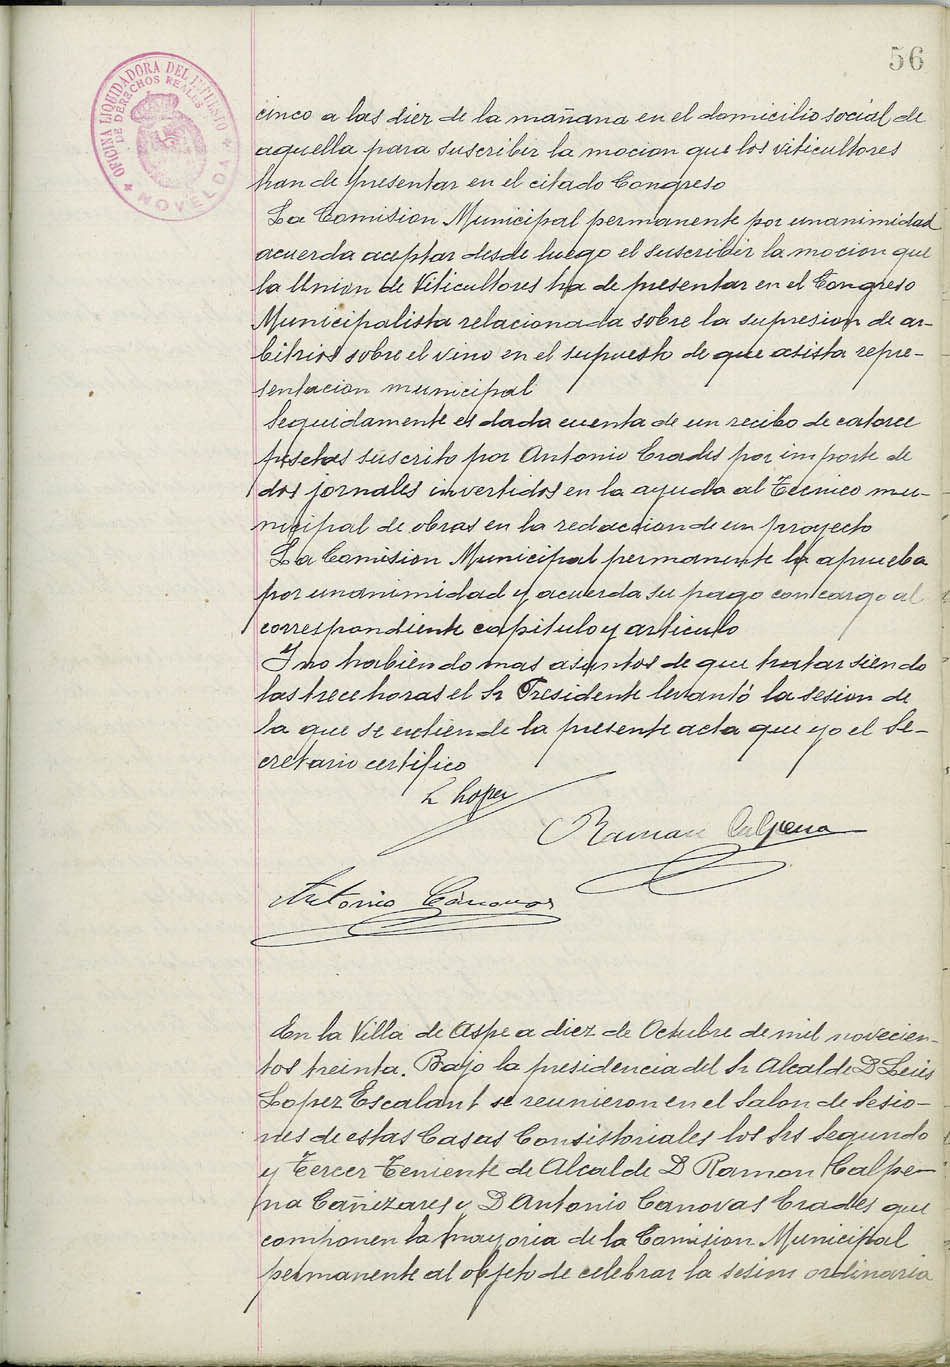 56
OFICINA LIQUIDADORA DEL IMPUESTO
DE DERECHOS REALES
NOVELDA
cinco a las diez de la mañana en el domicilio social de
aquella para suscribir la mocion que los viticultores
han de presentar en el citado Congreso
La Comision Municipal permanente por unanimidad
acuerda aceptar desde luego el suscribir la mocion que
la Union de Viticultores ha de presentar en el Congreso
Municipalista relacionada sobre la supresion de ar-
bitrios sobre el vino en el supuesto de que asista repre-
sentacion municipal
Seguidamente es dada cuenta de un recibo de catorce
pesetas suscrito por Antonio Erades por importe de
dos jornales invertidos en la ayuda al Tecnico mu-
nicipal de obras en la redaccion de un proyecto
La Comision Municipal permanente lo aprueba
por unanimidad y acuerda su pago con cargo al
correspondiente capitulo y articulo
Y no habiendo mas asuntos de que tratar siendo
las trece horas el Sr Presidente levantó la sesion de
la que se extiende la presente acta que yo el Se-
cretario certifico
L Lopez
Ramon Calpena
Antonio Cánovas
En la Villa de Aspe a diez de Octubre de mil novecien-
tos treinta. Bajo la presidencia del Sr Alcalde D Luis
Lopez Escalant se reunieron en el Salon de Sesio-
nes de estas Casas Consistoriales los Srs Segundo
y Tercer Teniente de Alcalde D Ramon Calpe-
na Cañizares y D Antonio Canovas Erades que
componen la mayoria de la Comision Municipal
permanente al objeto de celebrar la sesion ordinaria